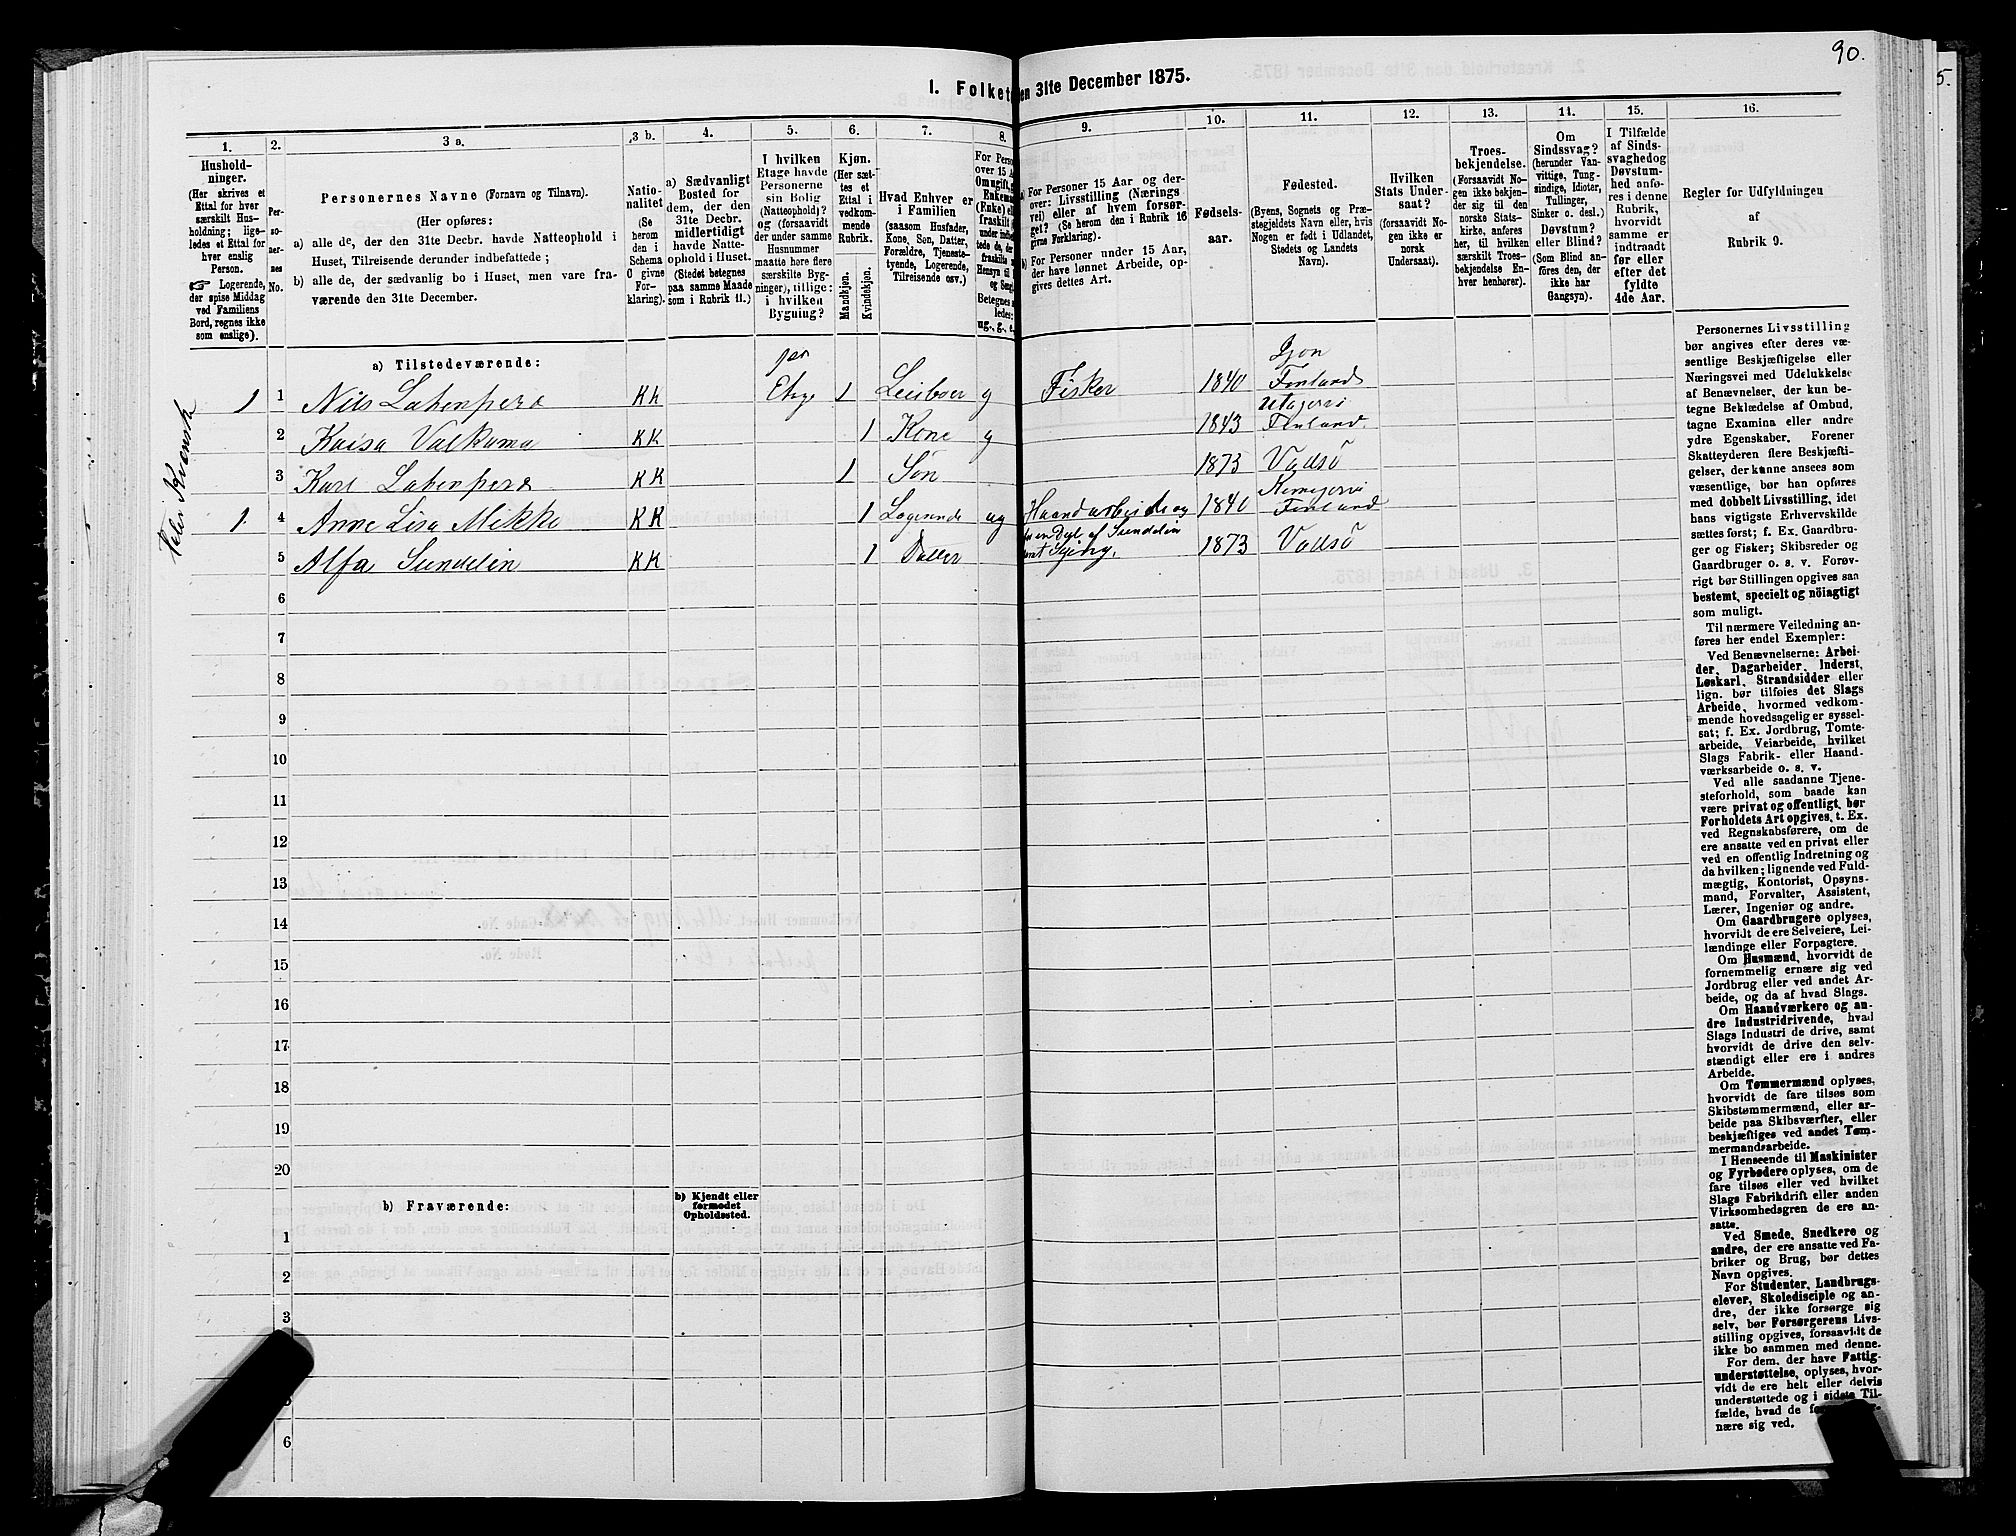 90.
5.
1. Folket en 31te December 1875.
1. 2. 3 a. 3 b. 4. 5. 6. 7. 8. 9. 10. 11. 12. 13. 14. 15. 16.
Hushold-
ninger.
(Her skrives et
Ettal for hver
særskilt Hus-
holdning; lige-
ledes et Ettal for
hver enslig
Person.
☞ Logerende,
der spise Middag
ved Familiens
Bord, regnes ikke
som enslige).
Per-
so-
ner-
nes
No.
Personernes Navne (Fornavn og Tilnavn).
(Her opføres:
a) alle de, der den 31te Decbr. havde Natteophold i
Huset, Tilreisende derunder indbefattede;
b) alle de, der sædvanlig bo i Huset, men vare fra-
værende den 31te December.
Natio-
nalitet
(Se
herom
den i
Schema
C givne
For-
klaring).
a) Sædvanligt
Bosted for
dem, der den
31te Decbr.
midlertidigt
havde Natte-
ophold i Huset.
(Stedet betegnes
paa samme Maade
som i Rubrik 11.)
I hvilken
Etage havde
Personerne
sin Bolig
(Natteophold)?
og (forsaavidt
der under samme
Husnummer
maatte høre flere
særskilte Byg-
ninger), tillige:
i hvilken
Bygning?
Kjøn.
(Her sæt-
tes et
Ettal i
vedkom-
mende
Rubrik.
Mandkjøn.
Kvindekjøn.
Hvad Enhver er
i Familien
(saasom Husfader,
Kone, Søn, Datter,
Forældre, Tjeneste-
tyende, Logerende,
Tilreisende osv.)
For Perso
over 15 Aa
Om ugift, g
Enkem
(Enke) el
fraskilt
under indb
tede de, d
fraskilte
Hensyn til
og Seng
Betegnes s
ledes:
ug., g., e.
a) For Personer 15 Aar og der-
over: Livsstilling (Nærings
vei) eller af hvem forsør-
get? (Se herom den i Rubrik 16
givne Forklaring).
b) For Personer under 15 Aar,
der have lønnet Arbeide, op-
gives dettes Art.
Fødsels-
aar.
Fødested.
(Byens, Sognets og Præ-
stegjeldets Navn eller, hvis
Nogen er født i Udlandet,
Stedets og Landets
Navn).
Hvilken
Stats Under-
saat?
(forsaavidt No-
gen ikke er
norsk
Undersaat).
Troes-
bekjendelse.
(Forsaavidt No-
gen ikke bekjen-
der sig til den
norske Stats-
kirke, anføres
her, til hvilken
særskilt Troes-
bekjendelse En-
hver henhører).
Om
Sindssvag?
(herunder Van-
vittige, Tung-
sindige, Idioter,
Tullinger,
Sinker o. desl.)
Døvstum?
eller Blind?
(Som Blind an-
føres den, der
ikke har
Gangsyn).
I Tilfælde
af Sinds-
svaghedog
Døvstum-
hed anfø-
res i denne
Rubrik,
hvorvidt
samme er
indtraadt
før eller
efter det
fyldte
4de Aar.
Regler for Udfyldningen
af
Rubrik 9.
a) Tilstedeværende:
1 1 Nils Lakenpera KK Etage 1 Leieboer g Fisker 1840 Finland
2 Kaisa Valkama KK 1 Kone g 1843 Finland
3 Karl Lakenpera KK 1 Søn 1873 Vadsö
1. 4 Anne Lisa Mikko KK 1 Logerende ug Haandarbeide og 1840 Kemijervi Finland
5 Alfa Sundelin KK 1 Datter 1873 Vadsö
6
7
8
9
10
11
12
13
14
15
16
17
18
19
20
b) Fraværende:
b) Kjendt eller
formodet
Opholdssted.
1
2
3
6
Personernes Livsstilling
bør angives efter deres væ-
sentlige Beskjæftigelse eller
Næringsvei med Udelukkelse
af Benævnelser, der kun be-
tegne Beklædelse af Ombud,
tagne Examina eller andre
ydre Egenskaber. Forener
Skatteyderen flere Beskjæfti-
gelser, der kunne ansees som
væsentlige, bør han opføres
med dobbelt Livsstilling, idet
hans vigtigste Erhvervskilde
sættes først; f. Ex. Gaardbru-
ger og Fisker; Skibsreder og
Gaardbruger o. s. v. Forøv-
rigt bør Stillingen opgives saa
bestemt, specielt og nöiagtigt
som muligt.
Til nærmere Veiledning an-
føres her endel Exempler:
Ved Benævnelserne: Arbei-
der, Dagarbeider, Inderst,
Løskarl, Strandsidder eller
lign. bør tilføies det Slags
Arbeide, hvormed vedkom-
mende hovedsagelig er syssel-
sat; f. Ex. Jordbrug, Tomte-
arbeide, Veiarbeide, hvilket
Slags Fabrik- eller Haand-
værksarbeide o. s. v.
Ved alle saadanne Tjene-
steforhold, som baade kan
være privat og offentligt, bør
Forholdets Art opgives, t. Ex.
ved Regnskabsførere, om de
ere ansatte ved en privat eller
ved en offentlig Indretning og
da hvilken; lignende ved Fuld-
mægtig, Kontorist, Opsyns-
mand, Forvalter, Assistent,
Lærer, Ingeniør og andre.
Om Gaardbrugere oplyses,
hvorvidt de ere Selveiere, Lei-
lændinge eller Forpagtere.
Om Husmænd, hvorvidt de
fornemmelig ernære sig ved
Jordbrug eller ved andet Ar-
beide, og da af hvad Slags.
Om Haandværkere og an-
dre Industridrivende, hvad
Slags Industri de drive, samt
hvorvidt de drive den selv-
stændigt eller ere i andres
Arbeide.
Om Tømmermænd oplyses,
hvorvidt de fare tilsøs som
Skibstømmermænd, eller ar-
beide paa Skibsværfter, eller
beskjæftiges ved andet Tøm-
mermandsarbeide.
I Henseende til Maskinister
og Fyrbødere oplyses, om de
fare tilsøs eller ved hvilket
Slags Fabrikdrift eller anden
Virksomhedsgren de ere an-
satte.
Ved Smede, Snedkere og
andre, der ere ansatte ved Fa-
briker og Brug, bør dettes
Navn opgives.
For Studenter, Landbrugs-
elever, Skoledisciple og an-
dre, der ikke forsørge sig
selv, bør Forsørgerens Livs-
stilling opgives, forsaavidt de
ikke bo sammen med denne.
For dem, der have Fattig-
understøttelse, oplyses, hvor-
vidt de ere helt eller delvis
understøttede og i sidste Til-
fælde, hvad de
nære sig ved.